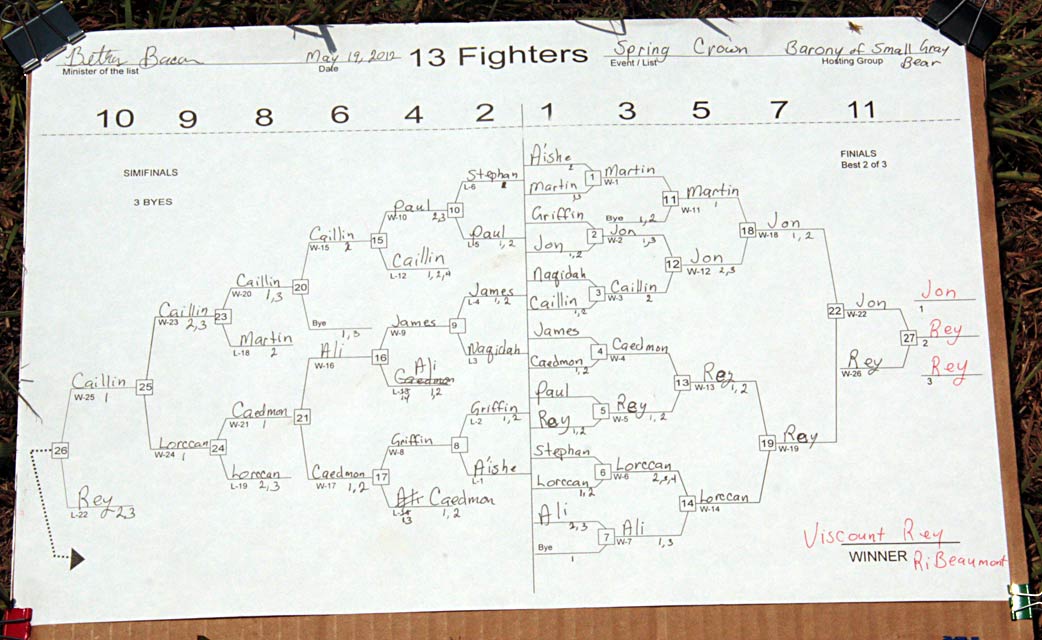 Bethy Bacon May 19, 2012 13 Fighters Spring Crown Barony of Small Gray Bear
Minister of the list Date Event / List Hosting Group
10 9 8 6 4 2 1 3 5 7 11
SIMIFINALS
3 BYES
FINIALS
Best 2 of 3
Stephan
L-6
Paul
W-10 2,3
10
Paul
L-5 1, 2
Caillin
W-15 2
15
Caillin
L-12 1,2,4
Caillin
W-20 1,3
20
Bye 1, 3
Caillin
W-23 2,3
23
Martin
L-18 2
James
L-4 1, 2
James
W-9
9
Naqidah
L3
Ali
W-16
16
Ali
Caedmon
1,2
Caillin
W-25 1
25
Caedmon
W-21 1
21
Griffin
L-2 1, 2
Griffin
W-8
8
A'ishe
L-1
Caedmon
W-17 1, 2
17
Caedmon
13 1, 2
Lorccan
W-24 1
24
Lorccan
L-19 2,3
26
Rey
L-22 2,3
A'ishe
2
1
Martin
W-1
Martin
Griffin
Bye 1, 2
11
Martin
W-11 1
2
Jon
W-2 1,3
Jon
1,2
12
Jon
W-12 2,3
18
Jon
W-18 1, 2
Naqidah
3
Caillin
W-3 2
Caillin
1,2
James
4
Caedmon
W-4
Caedmon
1,2
13
Rey
W-13 1, 2
Paul
5
Rey
W-5 1, 2
Rey
1,2
19
Rey
W-19
Stephan
6
Lorccan
W-6
Lorccan
1,2
14
Lorccan
W-14
Ali
2,3
7
Ali
W-7 1, 3
Bye
1
22
Jon
W-22
27
Rey
W-26
Jon
1
Rey
2
Rey
3
Viscount Rey
WINNER RiBeaumont